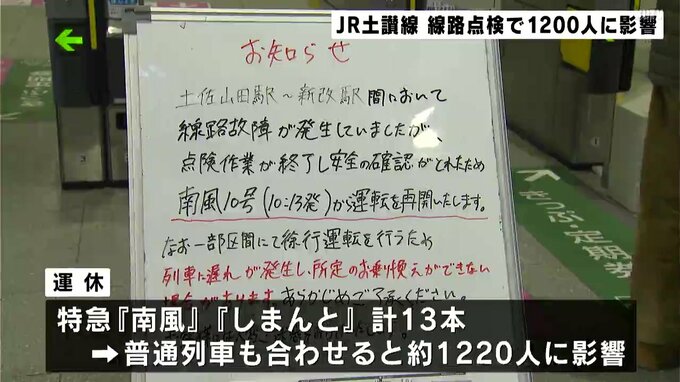 JR土讃線 線路点検で1200人に影響
お知らせ
土佐山田駅～新改駅間において
線路故障が発生していましたが、
点検作業が終了し安全の確認がとれたため
南風10号(10:13発)から運転を再開いたします。
なお一部区間にて徐行運転を行うため
列車に遅れが発生し、所定のお乗り換えができない
場合があります。あらかじめご了承ください。
運休
特急『南風』『しまんと』計13本
➡普通列車も合わせると約1220人に影響